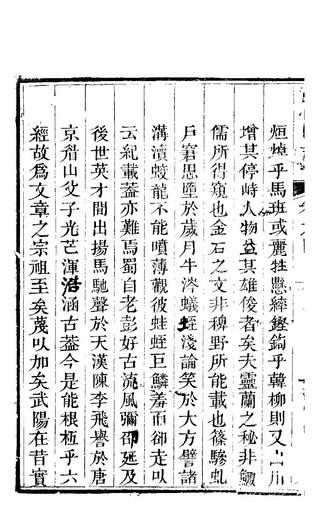 烜焯乎馬班或麗牲懸繂鏗鍧乎韓柳則又山川
增其停峙人物益其雄俊者矣夫靈蘭之秘非鯫
儒所得窺也金石之文非稗野所能載也篠驂虬
戶窘思墮於歲月牛涔蟻蛭淺論笑於大方譬諸
溝瀆蛟龍不能噴薄觀彼蛙蛭巨鱗羞而卻走以
云紀載蓋亦難焉蜀自老彭好古流風彌邵延及
後世英才間出揚馬馳聲於天漢陳李飛譽於唐
京眉山父子光芒渾涵古蓋今是能根極乎六
經故爲文章之宗祖至矣蔑以加矣武陽在昔實